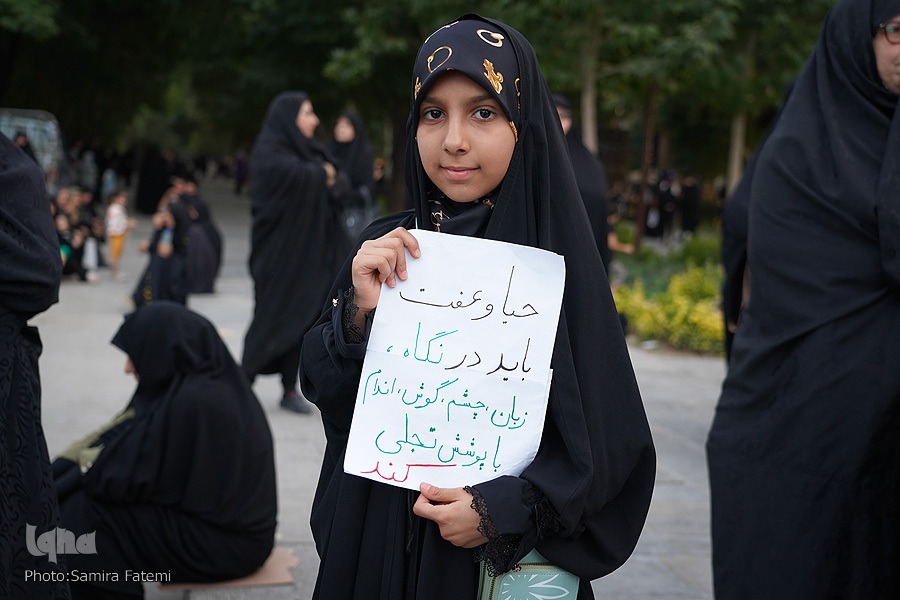 حیا و عفت
باید در نگاه ،
زبان، چشم، گوش، اندام
با پوشش تجلی
کند
iqna
Photo:Samira Fatemi